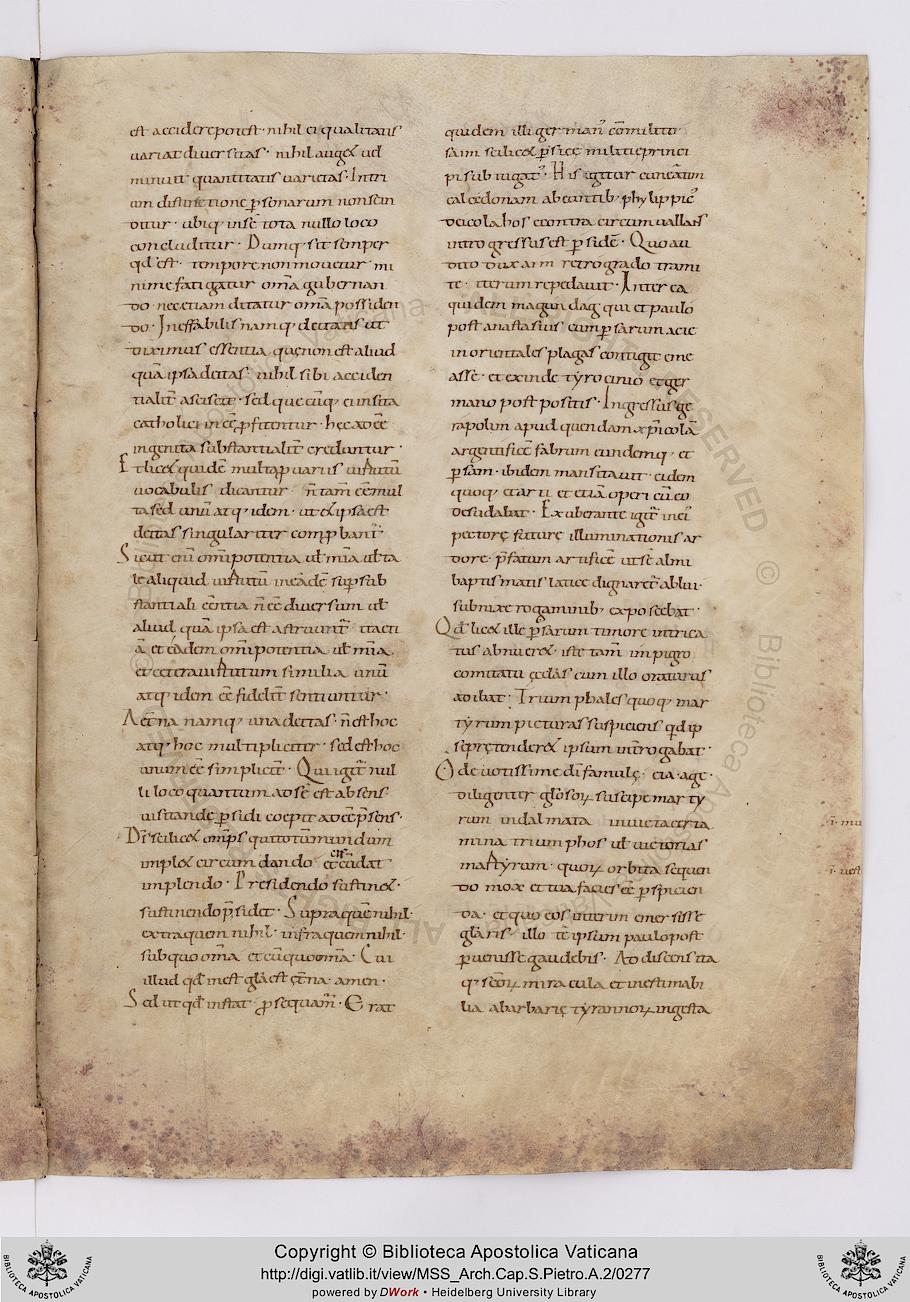 est accidere potest · nihil ei qualitatis
variat diuersitas · nihil auget uel
minuit quantitatis uarietas · Intri
um distinctione psonarum nonscin
ditur · ubiq; in se tota nullo loco
concluditur · Dumq; sit semper
qd est · tempore non mouetur · mi
nime fatigatur om̄a gubernan
do · nec etiam ditatur om̄a possiden
do · Ineffabilis namq; deitatis ut
diximus essentia quę non est aliud
quā ipsa deitas nihil sibi acciden
tialit̄ asciscit · sed que cūq; ei insita
catholici inēē pfitentur · hęc ad eē
ingenita substantialit̄ creduntur ·
Et licet quidē multa p uariis uirtutū
uocabulis dicantur n̄ tam̄ eē mul
ta sed unū atq; idem · ut et ipsa est
deitas singulariter comp bant̄ ·
Sicut eni omipotentia ut mīa ut ta
le aliquid uirtutū in eadē sup sub
stantiali eēntia n̄ eē diuersum ut
aliud quā ipsa est astruunt̄ · itacti
ā et eadem omipotentia ut mīa
et cetera uirtutum similia unū
atq; idem eē fidelit̄ sentiuntur ·
Aetna namq; una deitas · n̄ est hoc
atq; hoc multipliciter · sed est hoc
unum eē simplicit̄ · Qui igit̄ nul
li loco quantum ad se est absens
uisitande psidi coepit adeē psens ·
Dī scilicet omps qui totū mundum
implet circum dando et circūdat
implendo · Presidendo sustinet ·
sustinendo psidet · Supra quē nihil ·
extra quem nihil · infra quem nihil ·
sub quo om̄a et cū quo om̄a · Cui
illud qd inest gla est ętna · amen ·
Sed ut qd instat · psequam̄ · Erat
quidem illi german̄ cōmilito
sam scilicet psice militie princi
pi sub iugat̄ · His igitur cuneatim
calcedonam abeuntib; phylippic̄
deicola hos econtra circum uallans
introgressus est psidē · Quo au
dito dux a im retrogrado trami
te · iterum repedauit · Inter ea
quidem magundag; qui et paulo
post anastasius cum psarum acie
in orientales plagas contigit eme
asse · et exinde tyrocinio et ger
mano post positis · Ingressus ge
rapolun apud quendam xpicolā
argentificē fabrum eundemq; et
psam · ibidem mansitauit · eidem
quoq; et arti et etiā operi cū eo
desudabat · Exuberante igit̄ in ei
pectorę future illuminationis ar
dore · pfatum artificē ut se almi
baptismatis latice dignaret̄ ablui ·
submixe rogaminib; exposcebat ·
Qd licet ille psarum timore intrica
tus abnueret · iste tam̄ impigro
comitatu ędās cum illo oraturus
adibat · Triumphales quoq; mar
tyrum picturas suspiciens qd ip
sę prętenderet ipsum introgabat ·
O deuotissime dī famulę · eia age ·
diligenter gloso℞ suscipe marty
rum indalmata inuictaeria
mina triumphos ut uictorias
martyrum · quo℞ orbita sequen
do mox et tua facies eē pspicien
da · et quo eos inuerum emersisse
glaris illo te ipsum paulo post
puenisse gaudebis · Ad discensita
q; sco℞ miracula et inestimabi
lia a barbaric tyranno℞ ingesta
Copyright © Biblioteca Apostolica Vaticana
http://digi.vatlib.it/view/MSS_Arch.Cap.S.Pietro.A.2/0277
powered by DWork • Heidelberg University Library
BIBLIOTECA APOSTOLICA VATICANA
BIBLIOTECA APOSTOLICA VATICANA